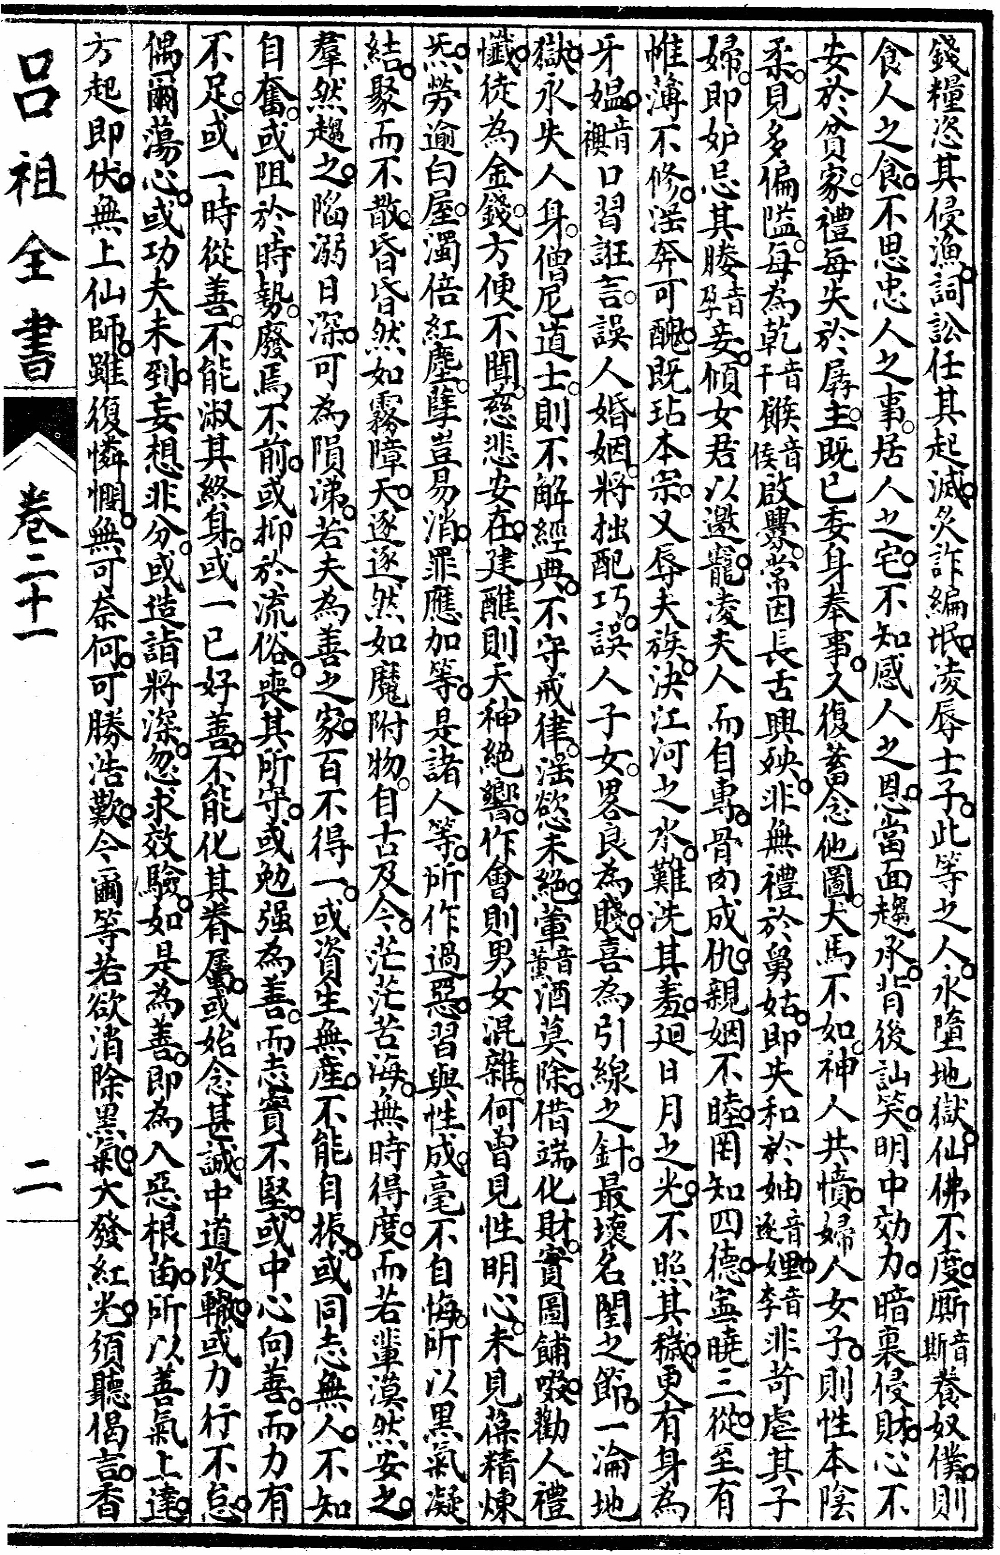 錢糧恣其侵漁詞訟任其起滅災詐編氓凌辱士子此等之人永墮地獄仙佛不度厮音斯養奴僕則
食人之食不思忠人之事居人之宅不知感人之恩當面趨承背後訕笑明中効力暗裏侵財心不
安於貧家禮每失於孱主既已委身奉事又復蓄念他圖犬馬不如神人共憤婦人女子則性本陰
柔見多偏隘每為乾音干餱音侯啟釁常因長舌興殃非無禮於舅姑即失和於妯音逐娌音李非苛虐其子
婦即妒忌其媵音孕妾傾女君以邀寵凌夫人而自專骨肉成仇親姻不睦罔知四德寧曉三從至有
帷薄不修淫奔可醜既玷本宗又辱夫族決江河之水難洗其羞廻日月之光不照其穢更有身為
牙媼音襖口習誑言誤人婚姻將拙配巧誤人子女畧良為賤喜為引線之針最壞名閨之節一淪地
獄永失人身僧尼道士則不解經典不守戒律淫慾未絕葷音薰酒莫除借端化財實圖餔啜勸人禮
懺徒為金錢方便不聞慈悲安在建醮則天神絕響作會則男女混雜何曾見性明心未見葆精煉
炁勞逾白屋濁倍紅塵孽豈易消罪應加等是諸人等所作過惡習與性成毫不自悔所以黑氣凝
結聚而不散昏昏然如霧障天逐逐然如魔附物自古及今茫茫苦海無時得度而若輩漠然安之
羣然趨之陷溺日深可為隕涕若夫為善之家百不得一或資生無產不能自振或同志無人不知
自奮或阻於時勢廢焉不前或抑於流俗喪其所守或勉强為善而志實不堅或中心向善而力有
不足或一時從善不能淑其終身或一已好善不能化其眷屬或始念甚誠中道改轍或力行不怠
偶爾蕩心或功夫未到妄想非分或造詣將深忽求效驗如是為善即為入惡根苗所以善氣上達
方起即伏無上仙師雖復憐憫無可奈何可勝浩歎今爾等若欲消除黑氣大發紅光須聽偈言香
呂祖全書
卷二十一
二